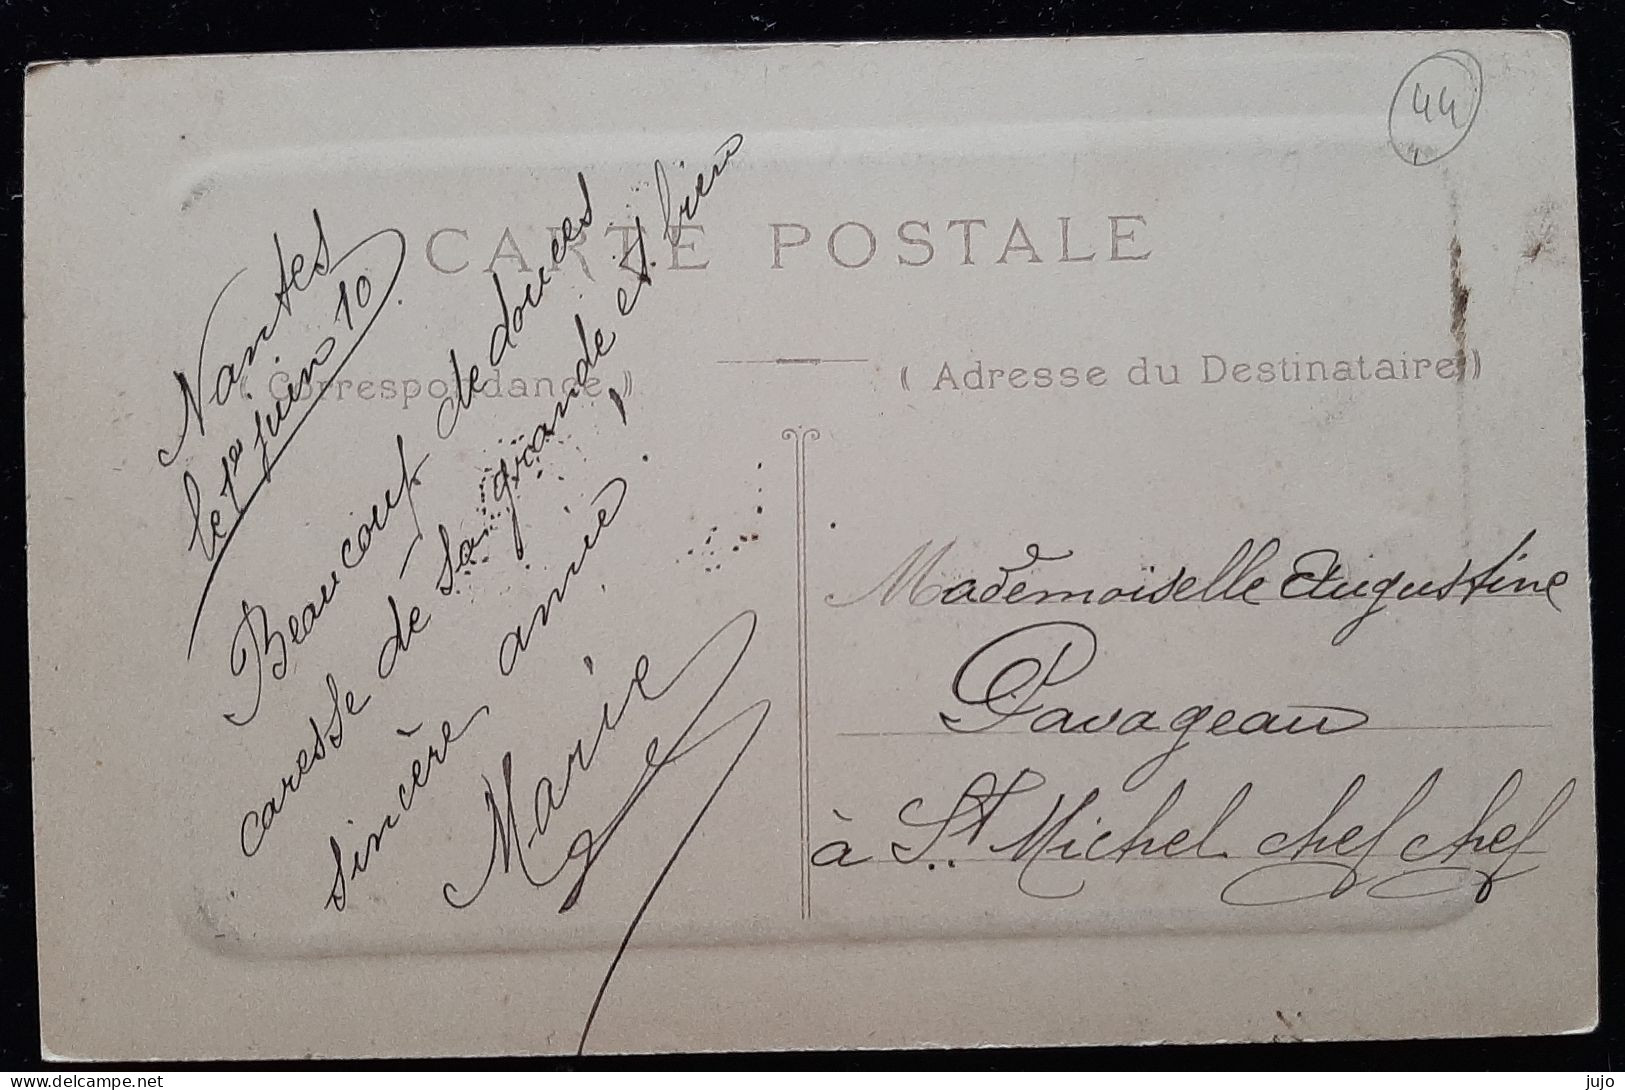 44
CARTE POSTALE
( Correspondance )
( Adresse du Destinataire )
Nantes
le 1er juin 10
Beaucoup de douces
caresse de sa grande et bien
sincère amie.
Marie
Mademoiselle Augustine
Pavageau
à St Michel chef chef
delcampe.net
jujo